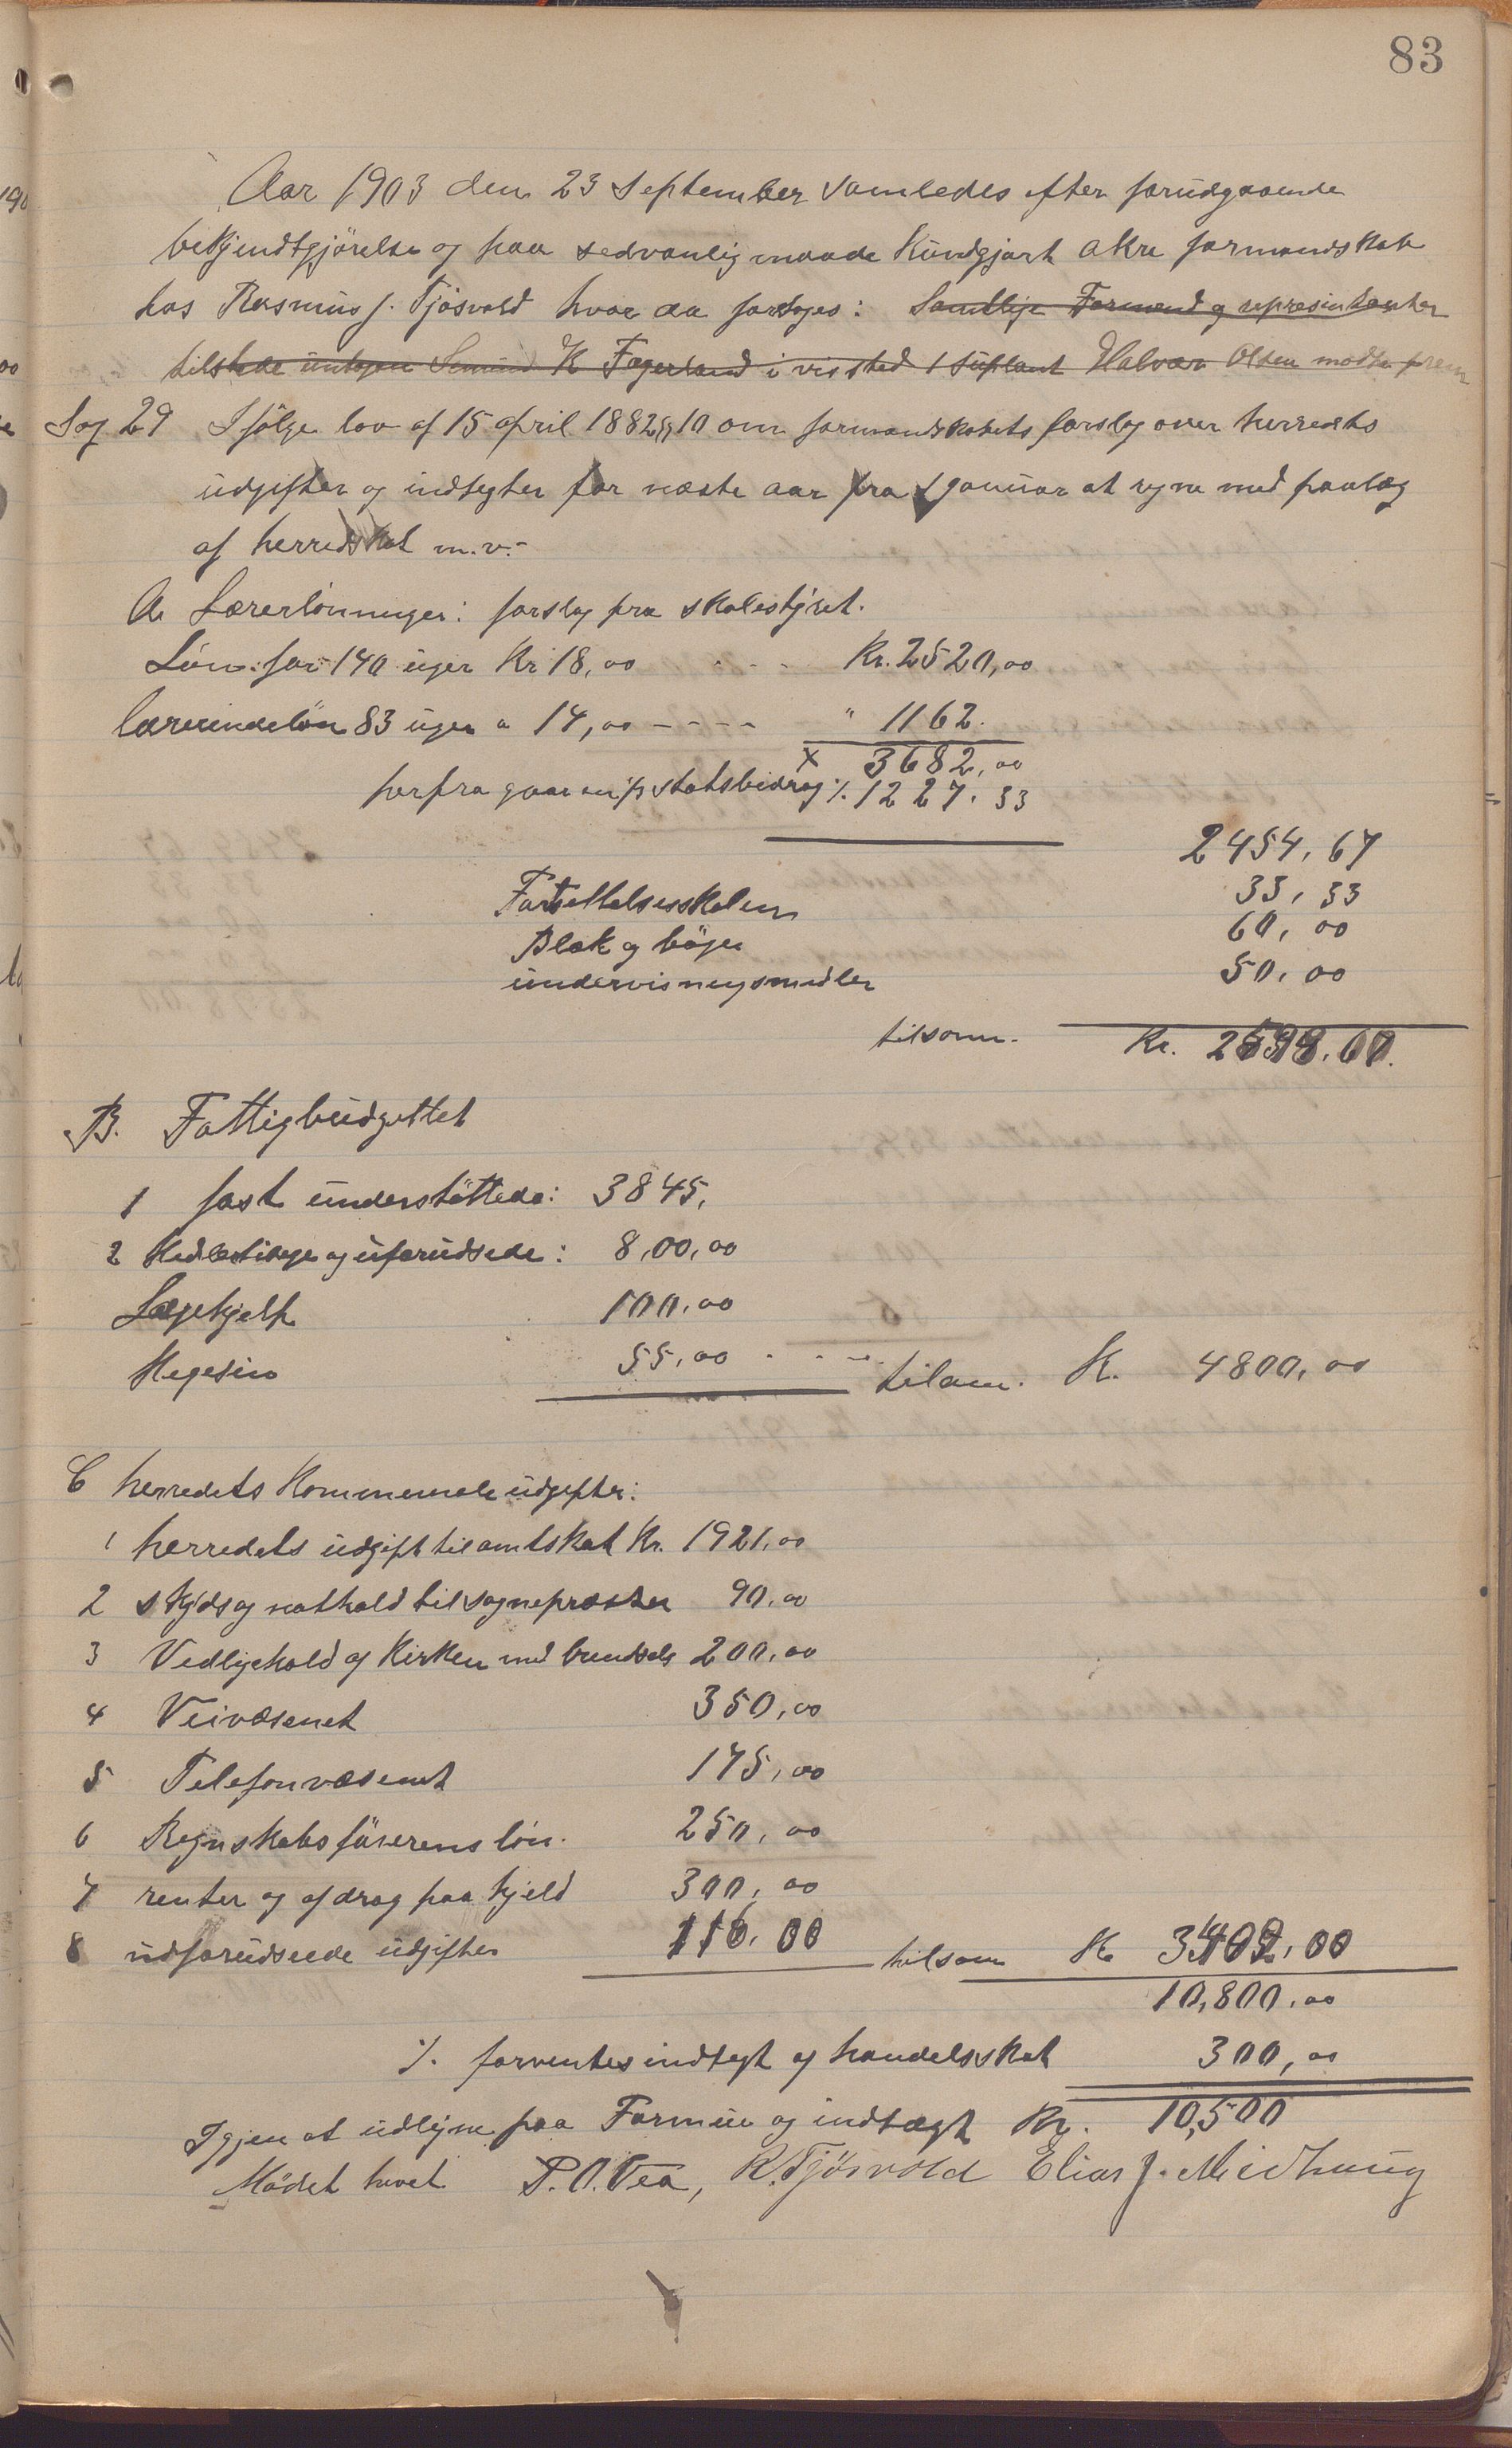 83
Aar 1903 den 23 September samledes efter forudgaaende
bekjendtgjörelse og paa sedvanlig maade Kundgjort Akre formandskab
hos Rasmus J. Tjösvold hvor da foretoges: Samtlige Formænd og represintanter
tilstede untagen Simund K Fagerland i vis sted 1 suplant Halvor Olsen mødte frem
Sag 29 Ifölge lov af 15 april 1882 § 10 om formandskabets forslag over herredets
udgifter og indtegter for næste aar fra 1 januar at regne med paalæg
af herredskat m.v.-
A. Lærerlönninger: forslag fra skolestyret.
Lön for 140 uger Kr 18,00 - - - Kr. 2520,00
lærerindelön 83 uger a 14,00 - - - - " 1162.
x 3682,00
herfra gaar en ⅓ statsbedrag ·/. 1227.33
2454,67
Fortsettelsesskolen 33,33
Blæk og böger 60,00
undervisningsmidler 50,00
tilsam. Kr. 2598.00.
B. Fattigbudgettet
1 fast understöttede: 3845,
2 Medlertidige og uforudsede: 8,00,00
Lægehjelp 100,00
Medesin 55,00 - - - tilsam. K. 4800,00
C herredets Kommunale udgifter:
1 herredets udgift til amtskat Kr. 1921,00
2 skyds og nathold til sogneprester 90,00
3 Vedligehold af Kirken med brendsels 200,00
4 Veivæsenet 350,00
5 Telefonvæsenet 175,00
6 Regnskabsförerens lön. 250,00
7 renter og afdrag paa gjeld 300,00
8 udforudseede udgifter 116.00 tilsam K 3402,00
10,800,00
·/. forventes indtegt af handelsskat 300,00
Igjen at udligne paa Formue og indtægt Kr. 10,500
Mödet hevet P. O. Vea, R. Tjösvold Elias J. Midhaug